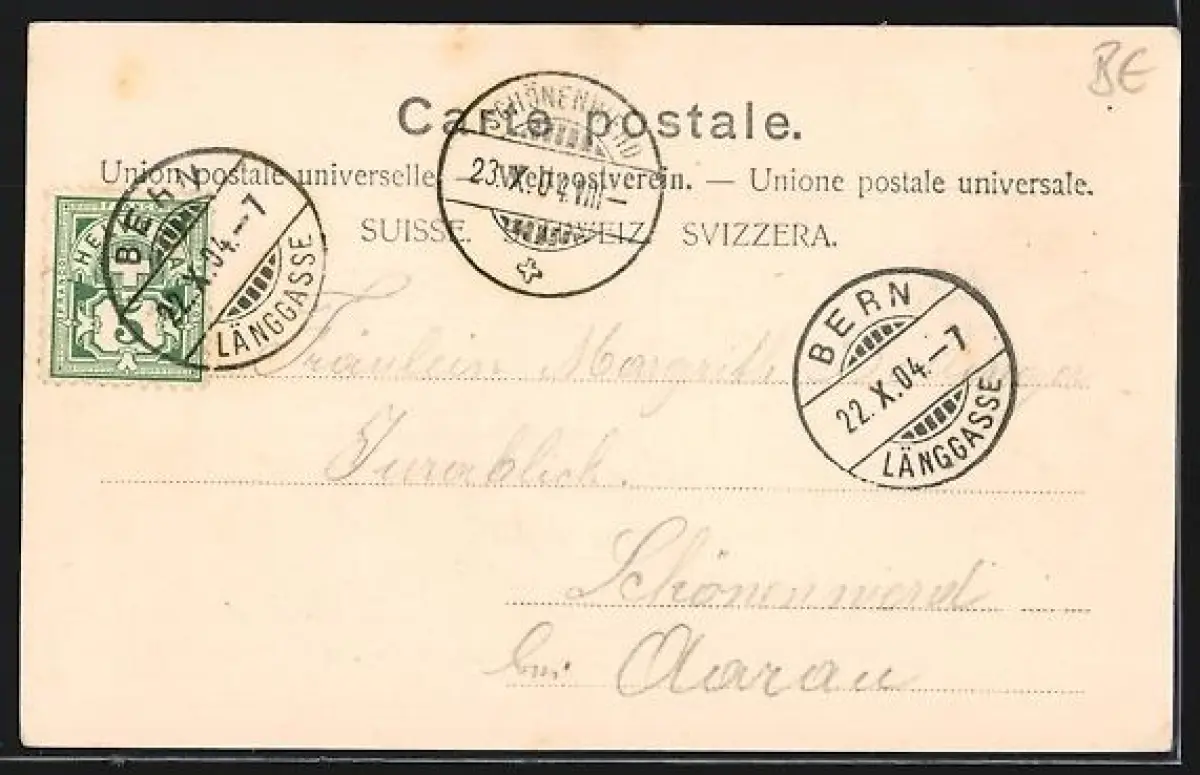 BE
Carte postale.
Union postale universelle. — Weltpostverein. — Unione postale universale.
SUISSE. SCHWEIZ. SVIZZERA.
SCHÖNENWERD
23.X.04.VIII—
BERN
22.X.04.—7
LÄNGGASSE
FRANCO
HELVETIA
5
BERN
22.X.04.—7
LÄNGGASSE
Fräulein Margrith
Jurablick.
Schönenwerd
bei Aarau